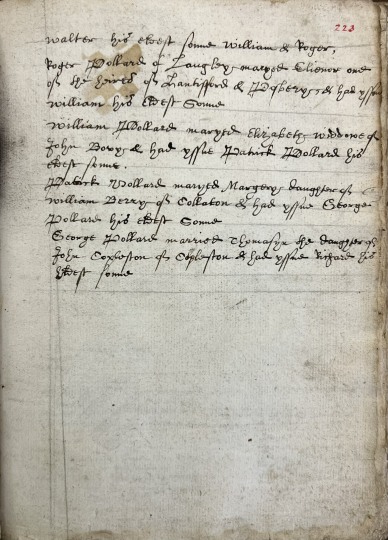 223
Walter his eldest sonne William & Roger,
Roger Pollard of Langleys maryed Elionor one
of the heires of & had yssue
William his Eldest Sonne
William Pollard maryed Elizabeth wydowe of
John & had yssue Patrick Pollard his
eldest sonne.
Patrick Pollard maryed Margery daughter of
William Berry of Collaton & had yssue George
Pollard his eldest Sonne
George Pollard married Thomasyn the daughter of
John Copleston of Copleston & had yssue Richard his
Eldest sonne